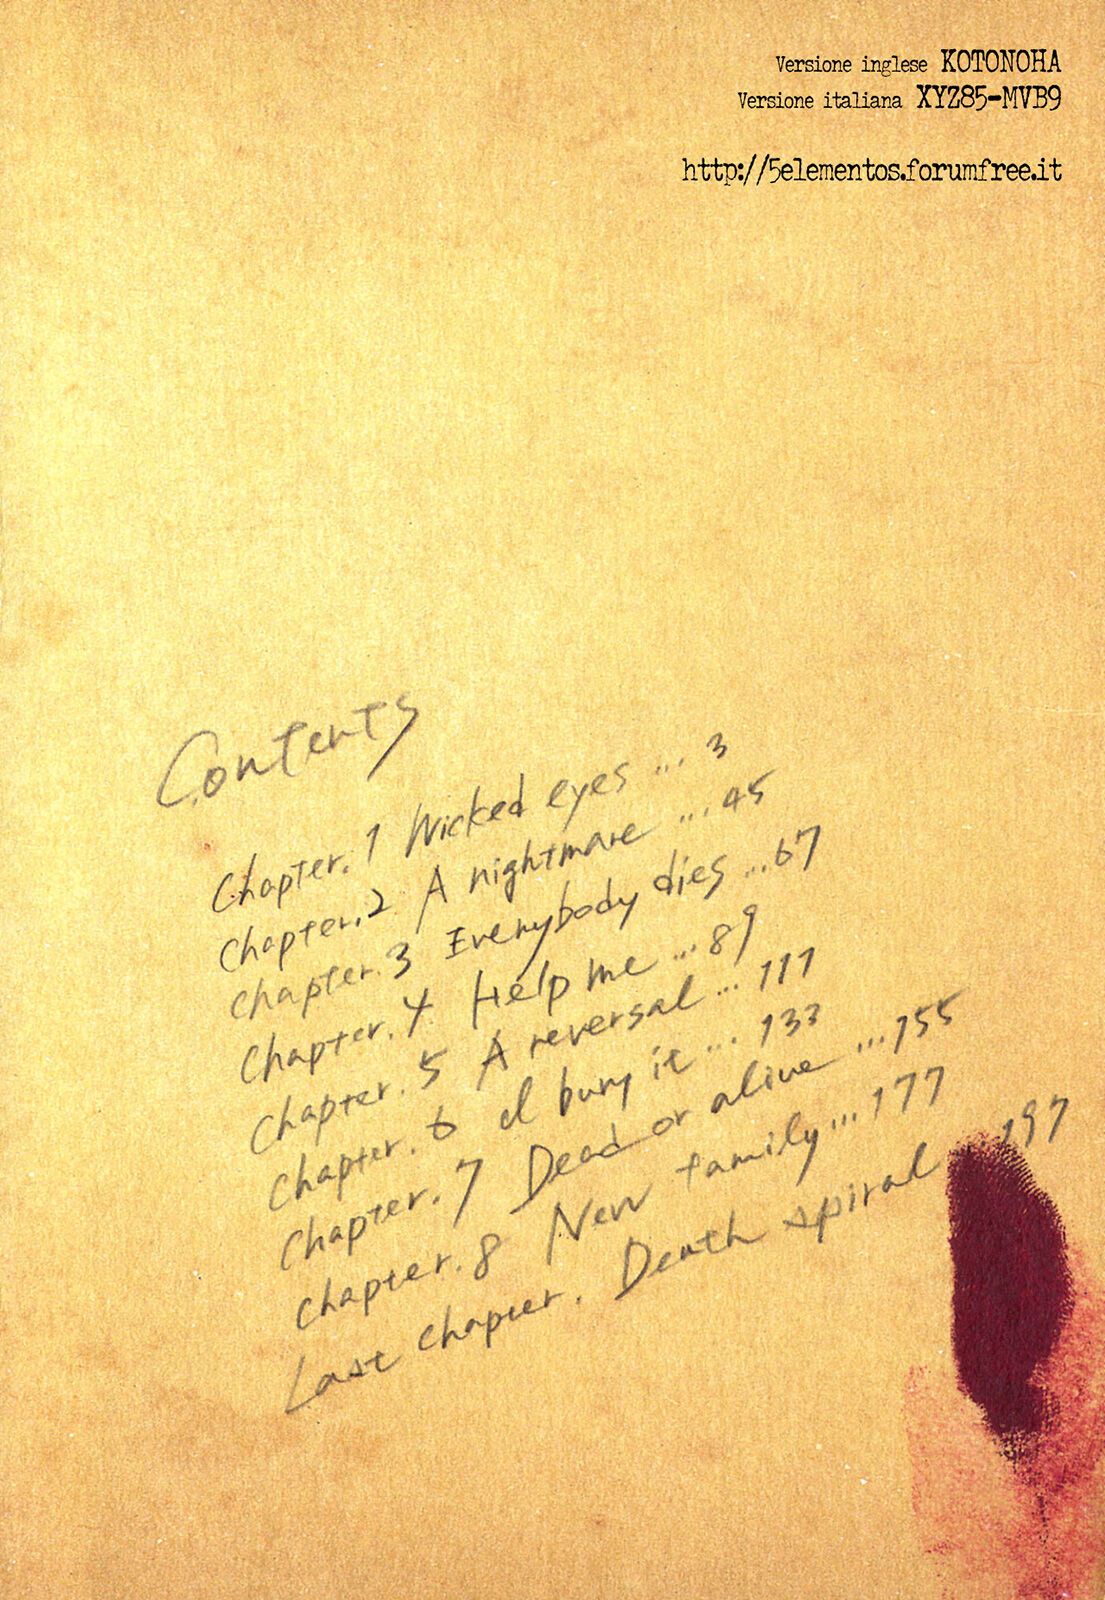 Versione inglese KOTONOHA
Versione italiana XYZ85-MVB9
http://5elementos.forumfree.it
Contents
Chapter.1 Wicked eyes ... 3
Chapter.2 A nightmare ... 45
Chapter.3 Everybody dies ... 67
Chapter.4 Help me ... 89
Chapter.5 A reversal ... 111
Chapter.6 I bury it ... 133
Chapter.7 Dead or alive ... 155
Chapter.8 New family ... 177
Last chapter. Death spiral ... 197